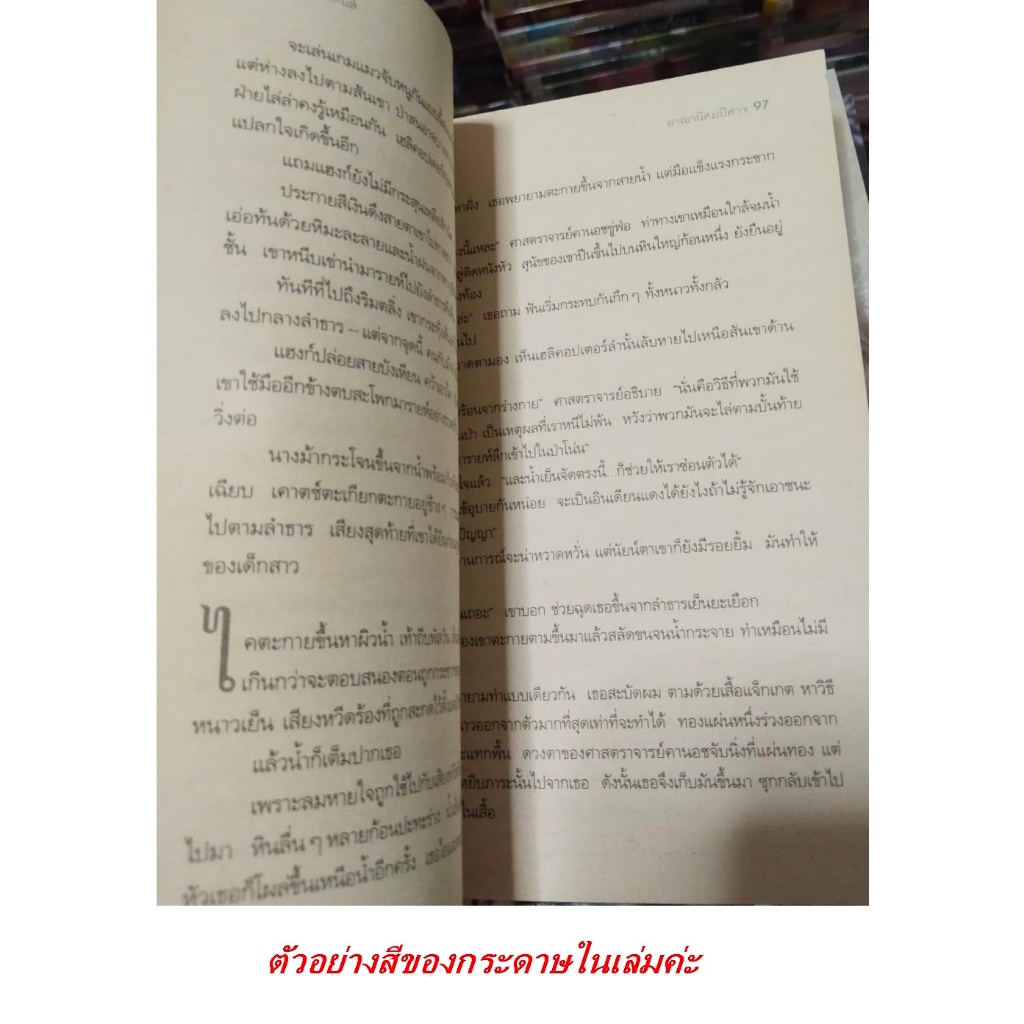 จะเล่นเกมแมวจับหนูกันแบบนี้
แต่ห่างลงไปตามสันเขา ป่าสน
ฝ่ายไล่ล่าคงรู้เหมือนกัน เฮลิคอปเตอร์
แปลกใจเกิดขึ้นอีก
แถมแฮงก์ยังไม่มีกระสุนเหลือ
ประกายสีเงินดึงสายตาเขาไป
เอ่อท้นด้วยหิมะละลายและน้ำฝนจาก
ชั้น เขาหนีบเข่านำมารายห์ไปยังลำธาร
ทันทีที่ไปถึงริมตลิ่ง เขากระตุ้น
ลงไปกลางลำธาร – แต่จากจุดนี้
แฮงก์ปล่อยสายบังเหียน คว้า
เขาใช้มืออีกข้างตบสะโพกมารายห์อย่าง
วิ่งต่อ
นางม้ากระโจนขึ้นจากน้ำพร้อม
เฉียบ เคาตช์ตะเกียกตะกายอยู่ข้างๆ
ไปตามลำธาร เสียงสุดท้ายที่เขาได้ยิน
ของเด็กสาว
ไคตะกายขึ้นหาผิวน้ำ เท้าถีบ
เกินกว่าจะตอบสนองตอนถูกกระชาก
หนาวเย็น เสียงหวีดร้องที่ถูกสะกดไว้
แล้วน้ำก็เต็มปากเธอ
เพราะลมหายใจถูกใช้ไปกับเสียง
ไปมา หินลื่นๆ หลายก้อนปะทะร่าง
หัวเธอก็โผล่ขึ้นเหนือน้ำอีกครั้ง
อาณานิคมปีศาจ 97
หาฝั่ง เธอพยายามตะกายขึ้นจากสายน้ำ แต่มือแข็งแรงกระชาก
งนี้แหละ” ศาสตราจารย์คานอชขู่ฟ่อ ท่าทางเขาเหมือนใกล้จมน้ำ
ลู่ติดหนังหัว สุนัขของเขาปีนขึ้นไปบนหินใหญ่ก้อนหนึ่ง ยังยืนอยู่
งท้อง
ล่ะ” เธอถาม ฟันเริ่มกระทบกันกึกๆ ทั้งหนาวทั้งกลัว
นไป
าดตามอง เห็นเฮลิคอปเตอร์ลำนั้นลับหายไปเหนือสันเขาด้าน
ร้อนจากร่างกาย” ศาสตราจารย์อธิบาย “นั่นคือวิธีที่พวกมันใช้
นป่า เป็นเหตุผลที่เราหนีไม่พ้น หวังว่าพวกมันจะไล่ตามบั้นท้าย
ารายห์ลึกเข้าไปในป่าโน่น”
ใจแล้ว “และน้ำเย็นจัดตรงนี้...ก็ช่วยให้เราซ่อนตัวได้”
ช้อุบายกันหน่อย จะเป็นอินเดียนแดงได้ยังไงถ้าไม่รู้จักเอาชนะ
ปัญญา”
านการณ์จะน่าหวาดหวั่น แต่นัยน์ตาเขาก็ยังมีรอยยิ้ม มันทำให้
นเถอะ” เขาบอก ช่วยฉุดเธอขึ้นจากลำธารเย็นยะเยือก
องเขาตะกายตามขึ้นมาแล้วสลัดขนจนน้ำกระจาย ทำเหมือนไม่มี
ายามทำแบบเดียวกัน เธอสะบัดผม ตามด้วยเสื้อแจ็กเกต หาวิธี
าวออกจากตัวมากที่สุดเท่าที่จะทำได้ ทองแผ่นหนึ่งร่วงออกจาก
ะแทกพื้น ดวงตาของศาสตราจารย์คานอชจับนิ่งที่แผ่นทอง แต่
หยิบภาระนั้นไปจากเธอ ดังนั้นเธอจึงเก็บมันขึ้นมา ซุกกลับเข้าไป
ในเสื้อ
ตัวอย่างสีของกระดาษในเล่มค่ะ